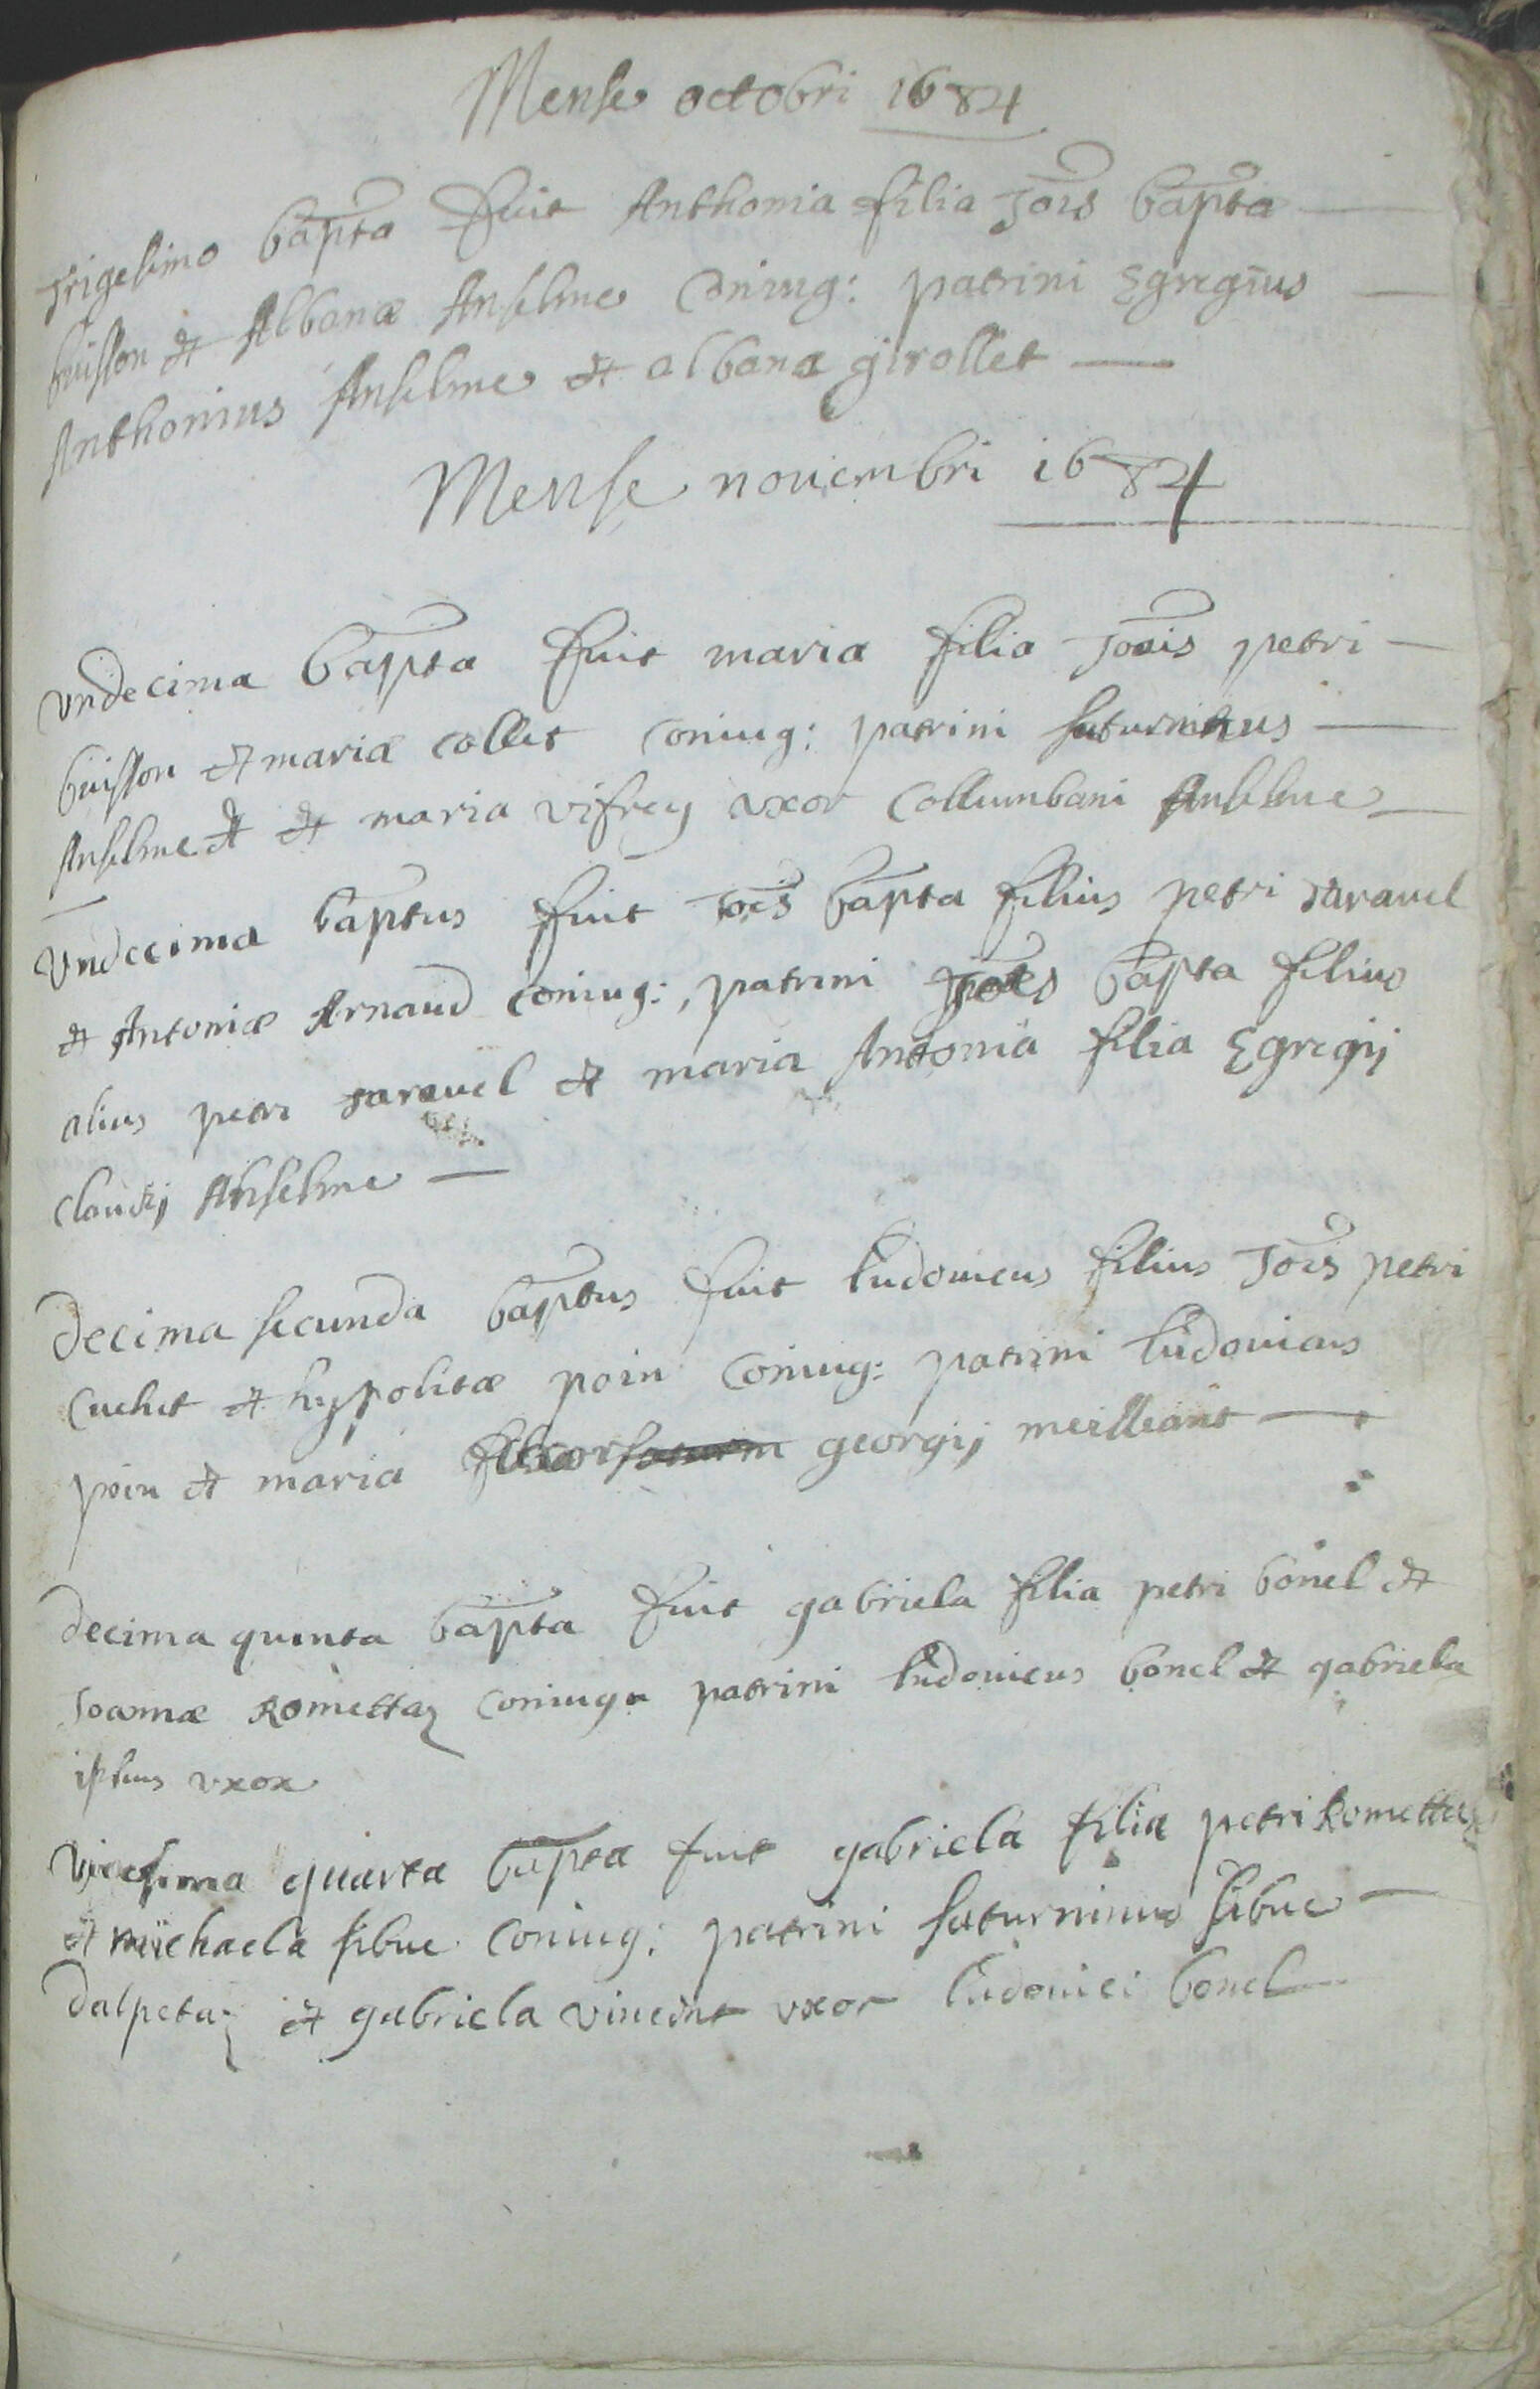 Mense octobri 1684
Trigesimo bapta fuit Anthonia filia Jois bapta
buisson et Albanæ Anselme Coniug: patrini Egregius
Anthonius Anselme et albana girollet
Mense nouembri 1684
vndecima bapta fuit maria filia Joais petri
buisson et mariæ collet coniug: patrini saturninus
Anselme et et maria vifrey vxor Collumbani Anselme
vndecima baptus fuit Joes bapta filius petri taravel
et Antoniæ Arnaud coniug:, patrini Joes bapta filius
alius petri taravel et maria Antonia filia Egregij
claudij Anselme
decima secunda baptus fuit ludouicus filius Jois petri
cuchet et hypolitæ poin coniug: patrini ludouicus
poin et maria georgij meilleant
decima quinta bapta fuit gabriela filia petri bonel et
Joannæ Romettaz coniugu patrini ludouicus bonel et gabriela
ipsius vxor
vicesima quarta bapta fuit gabriela filia petri Romettaz
et michaela sibue coniug: patrini saturninus sibue
dalpetaz et gabriela vincent vxor ludouici bonel